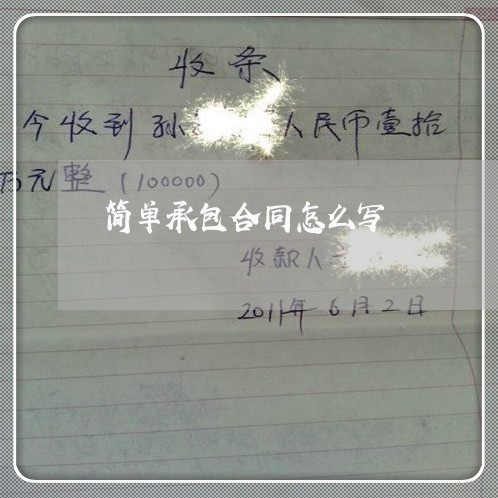 收条
今收到孙 人民币壹拾
万元整（100000）
简单承包合同怎么写
收款人
2011年6月2日